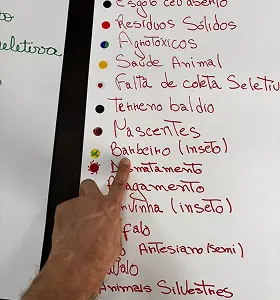 esgoto céu aberto
Resíduos Sólidos
Agrotóxicos
Saúde Animal
Falta de coleta Seletiv
Terreno baldio
Nascentes
Barbeiro (inseto)
matamento
agamento
vinha (inseto)
falo
Artesiano (semi)
valo
Animais Silvestres
eletiva